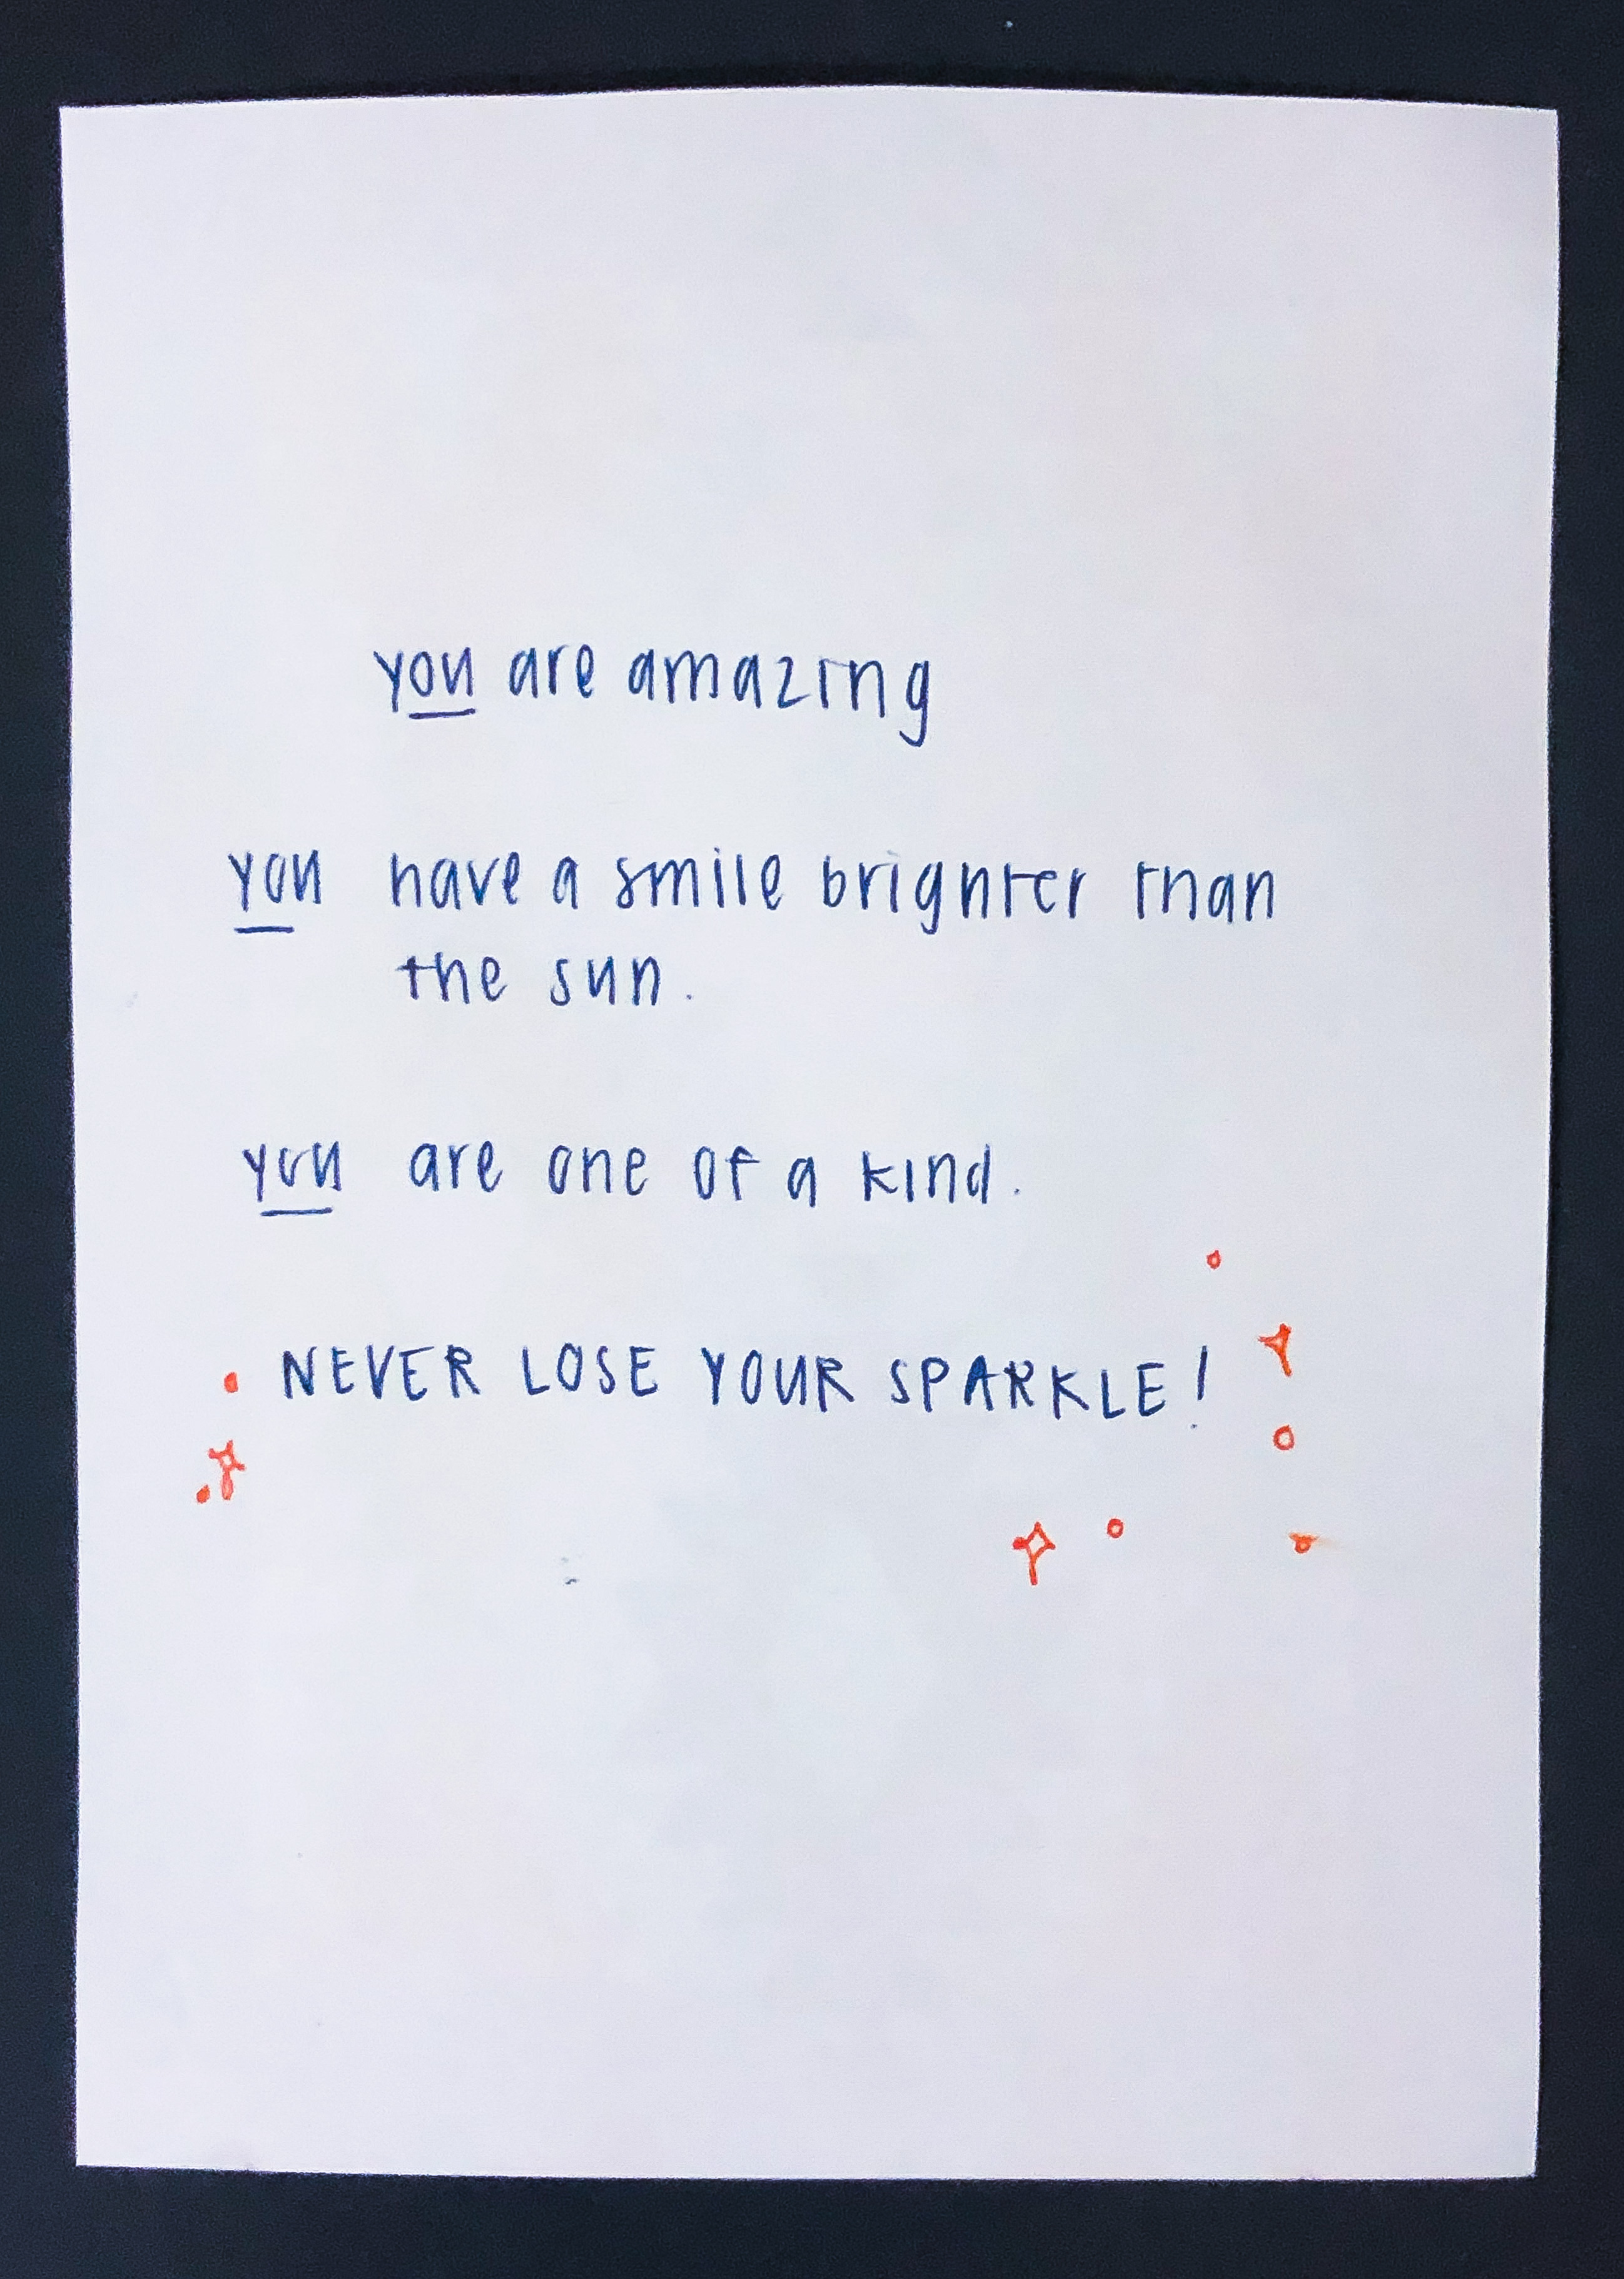 you are amazing
you have a smile brighter than
the sun.
you are one of a kind.
NEVER LOSE YOUR SPARKLE!